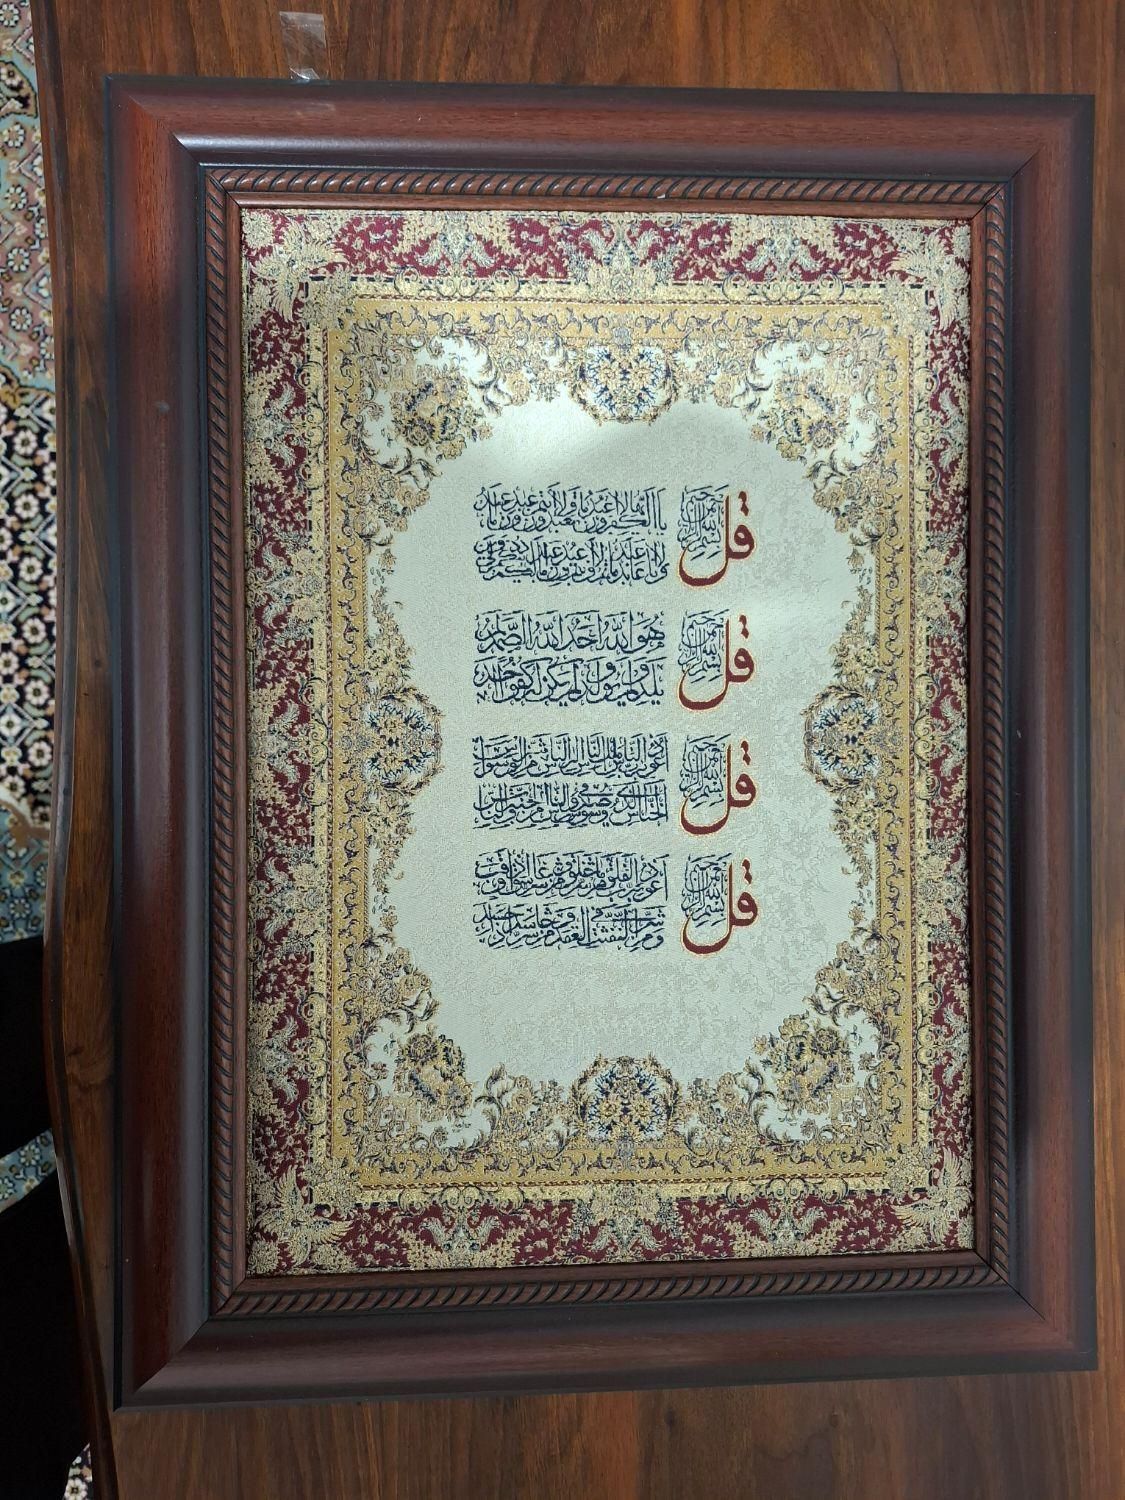 قل
بسم الله الرحمن الرحيم
يا ايها الكفرون لا اعبد ما تعبدون ولا انتم عبدون ما اعبد
ولا انا عابد ما عبدتم ولا انتم عبدون ما اعبد لكم دينكم ولي دين
قل
بسم الله الرحمن الرحيم
هُوَ اللهُ اَحَدٌ اَللهُ الصَّمَدُ
لَمْ يَلِدْ وَلَمْ يُولَدْ وَلَمْ يَكُنْ لَهُ كُفُوًا اَحَدٌ
قل
بسم الله الرحمن الرحيم
اعوذ برب الناس ملك الناس اله الناس من شر الوسواس
الخناس الذي يوسوس في صدور الناس من الجنة والناس
قل
بسم الله الرحمن الرحيم
اعوذ برب الفلق من شر ما خلق ومن شر غاسق اذا وقب
ومن شر النفثت في العقد ومن شر حاسد اذا حسد